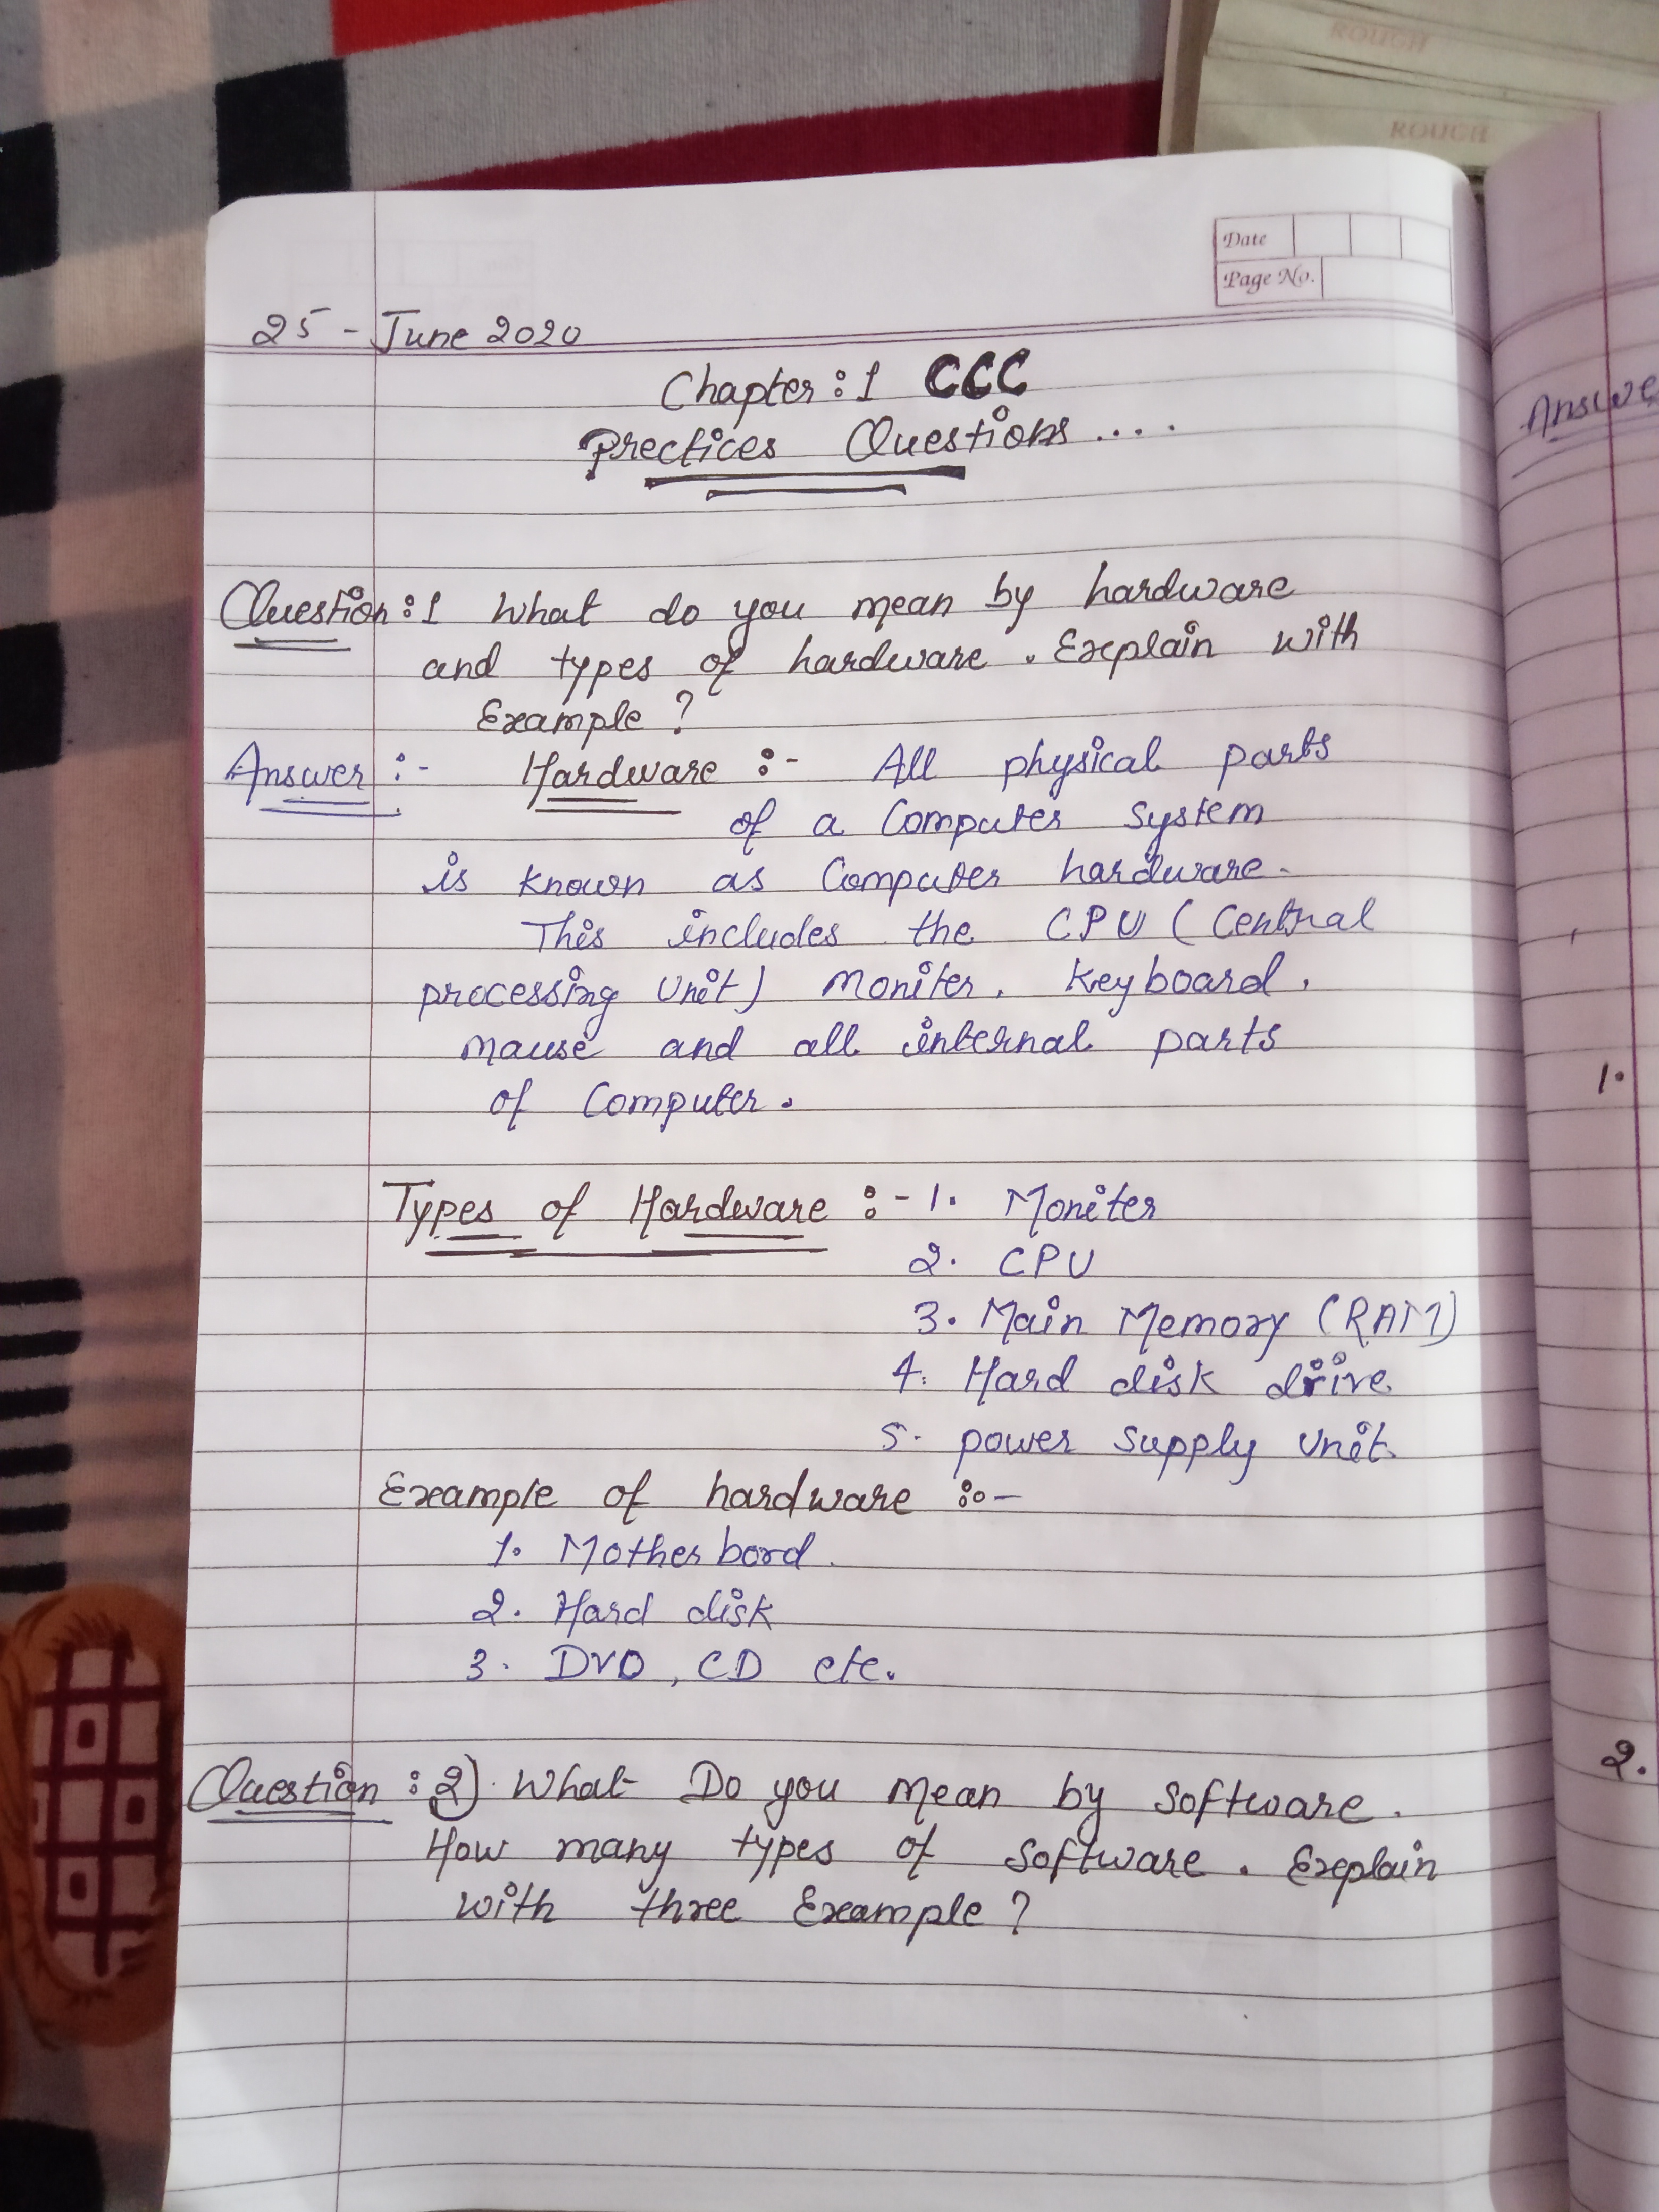 ROUGH
ROUGH
Date
Page No.
25 - June 2020
Chapter : 1 CCC
Prectices Questions ....
Question : 1 What do you mean by hardware
and types of hardware . Explain with
Example ?
Answer :- Hardware :- All physical parts
of a Computer System
is known as Computer hardware.
This includes the CPU ( Central
processing Unit) Moniter, Keyboard,
mause and all internal parts
of Computer.
Types of Hardware :- 1. Moniter
2. CPU
3. Main Memory (RAM)
4. Hard disk drive
5. power supply Unit.
Example of hardware :-
1. Mother bord.
2. Hard disk
3. DVD, CD etc.
Question : 2) What Do you Mean by Software.
How many types of Software. Explain
with three Example ?
Answe
1.
2.